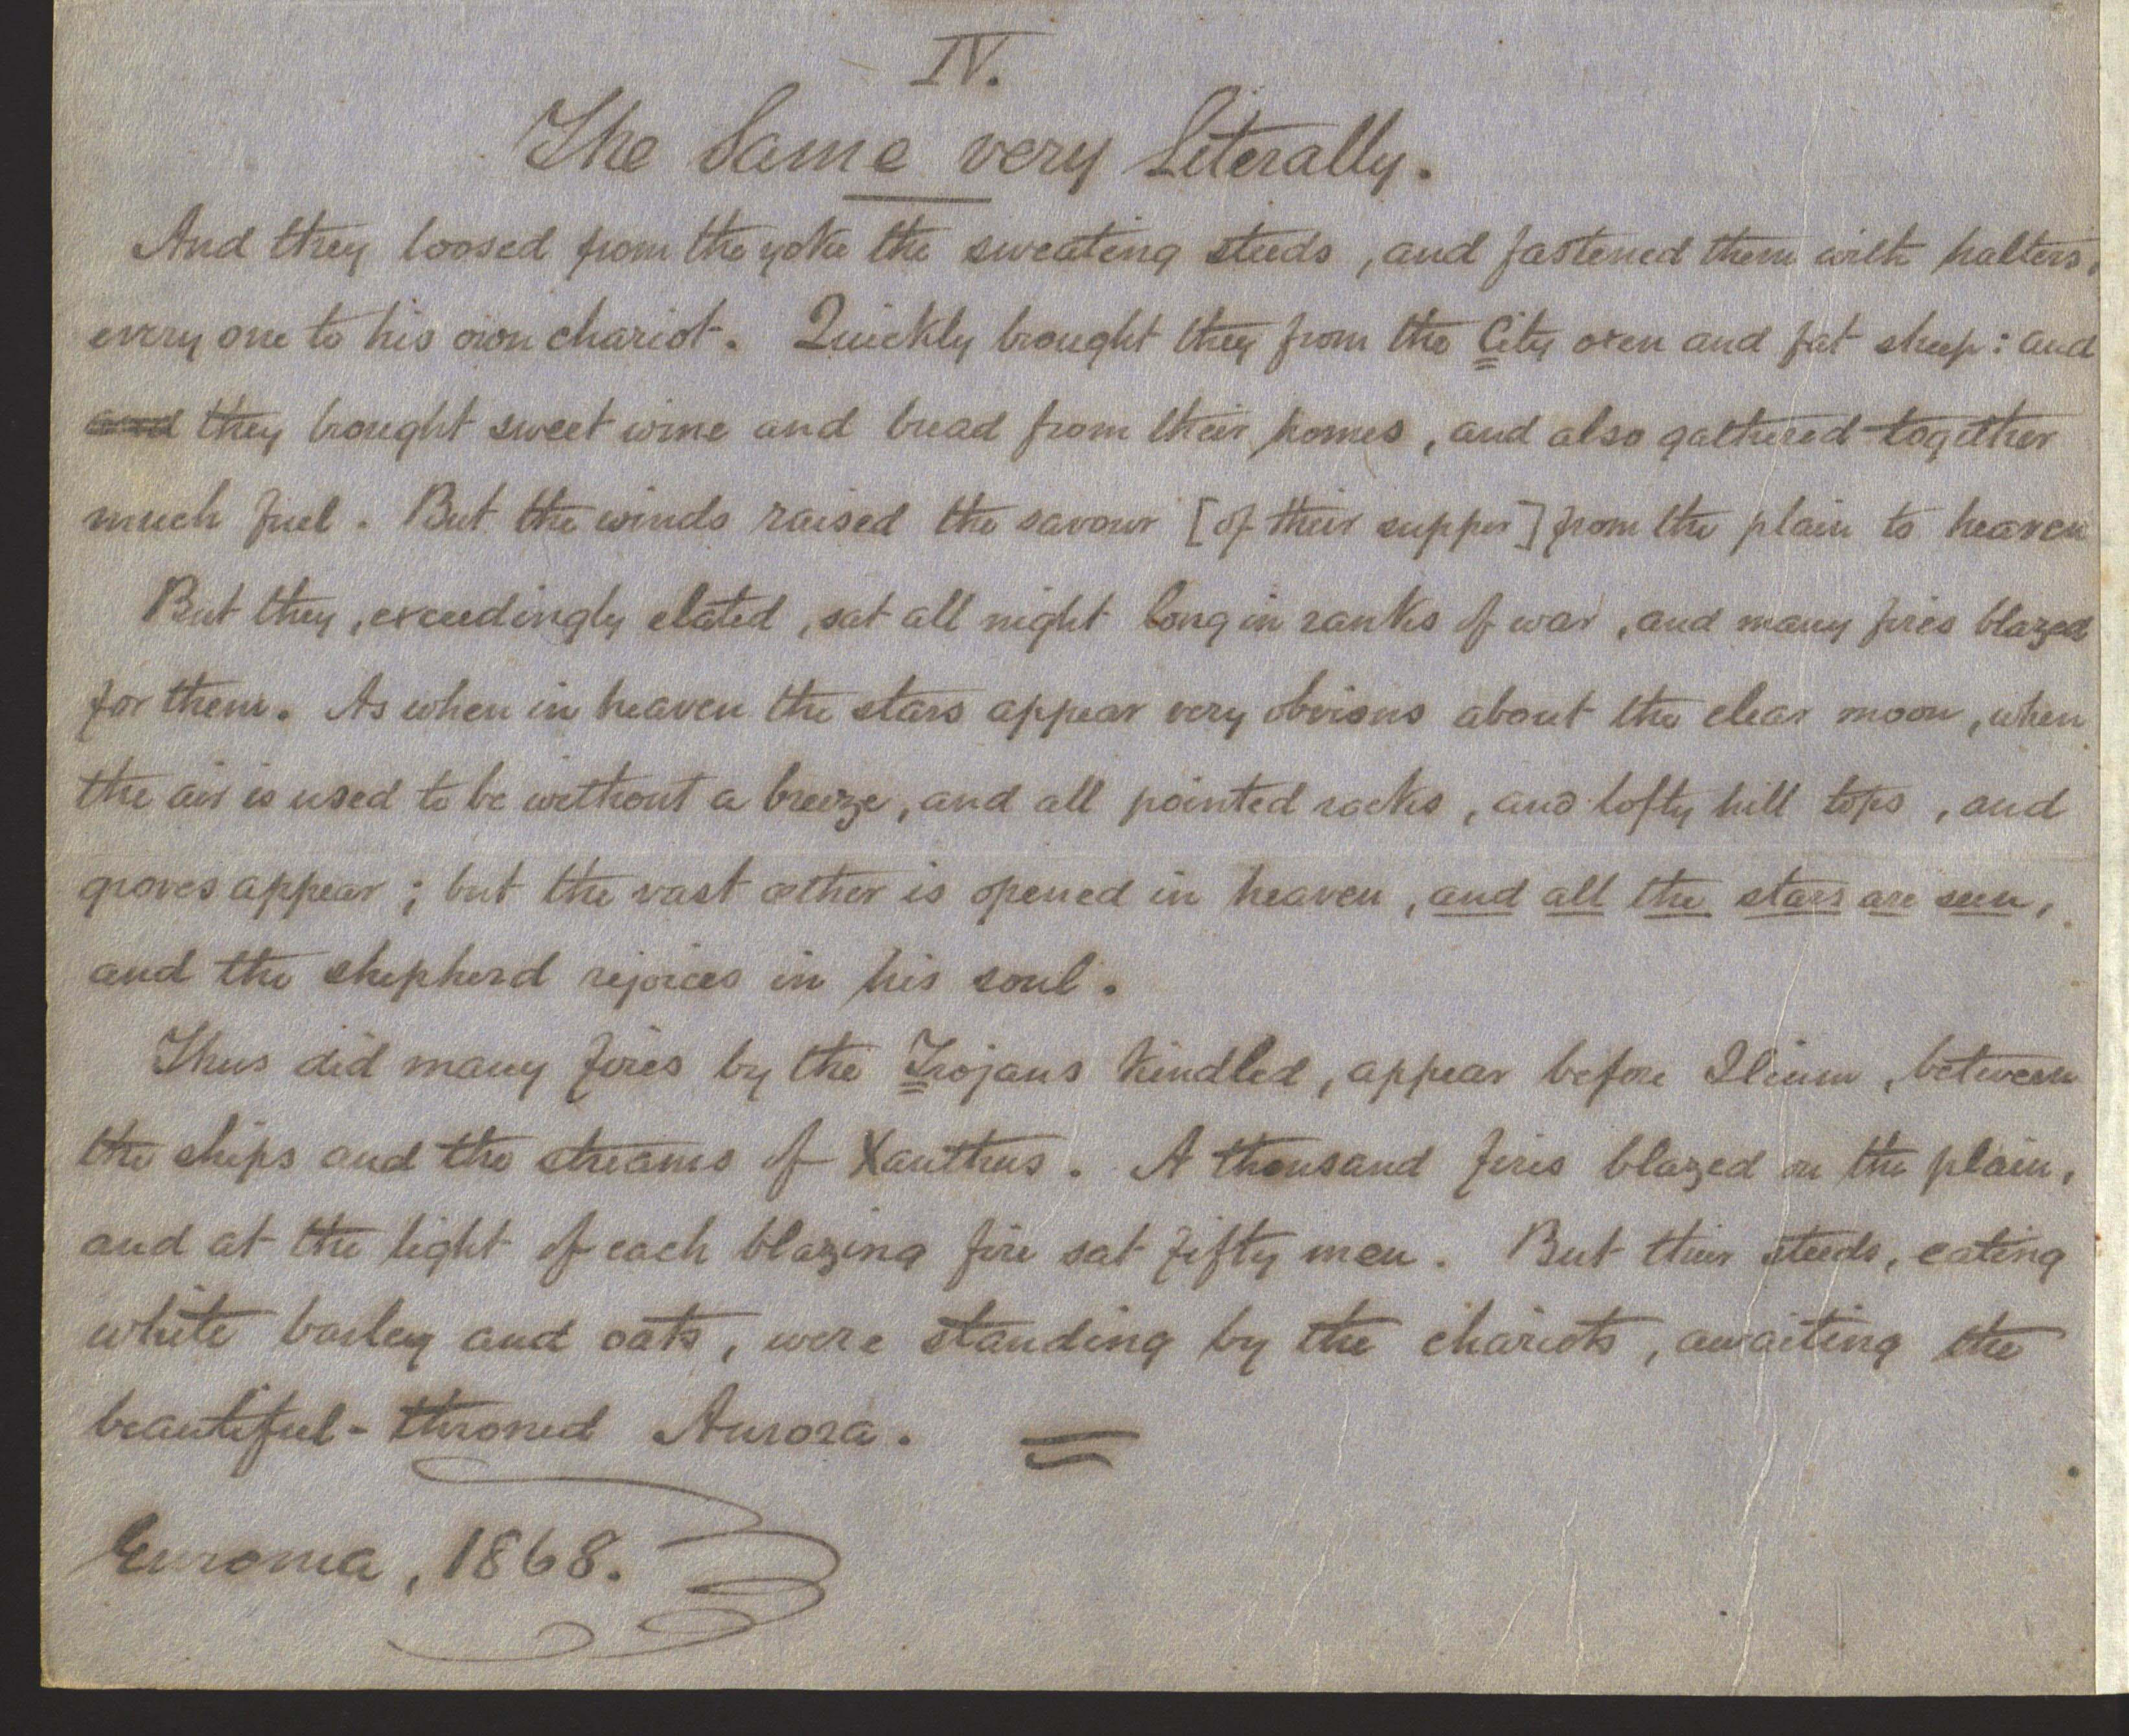 IV.
The Same very Literally.
And they loosed from the yoke the sweating steeds, and fastened them with halters,
every one to his own chariot. Quickly brought they from the City oxen and fat sheep: and
and they brought sweet wine and bread from their homes, and also gathered together
much fuel. But the winds raised the savour [of their supper] from the plain to heaven
But they, exceedingly elated, sat all night long in ranks of war, and many fires blazed
for them. As when in heaven the stars appear very obvious about the clear moon, when
the air is used to be without a breeze, and all pointed rocks, and lofty hill tops, and
groves appear; but the vast æther is opened in heaven, and all the stars are seen,
and the shepherd rejoices in his soul.
Thus did many fires by the Trojans kindled, appear before Ilium, between
the ships and the streams of Xanthus. A thousand fires blazed on the plain,
and at the light of each blazing fire sat fifty men. But their steeds, eating
white barley and oats, were standing by the chariots, awaiting the
beautiful-throned Aurora.
Euroma, 1868.